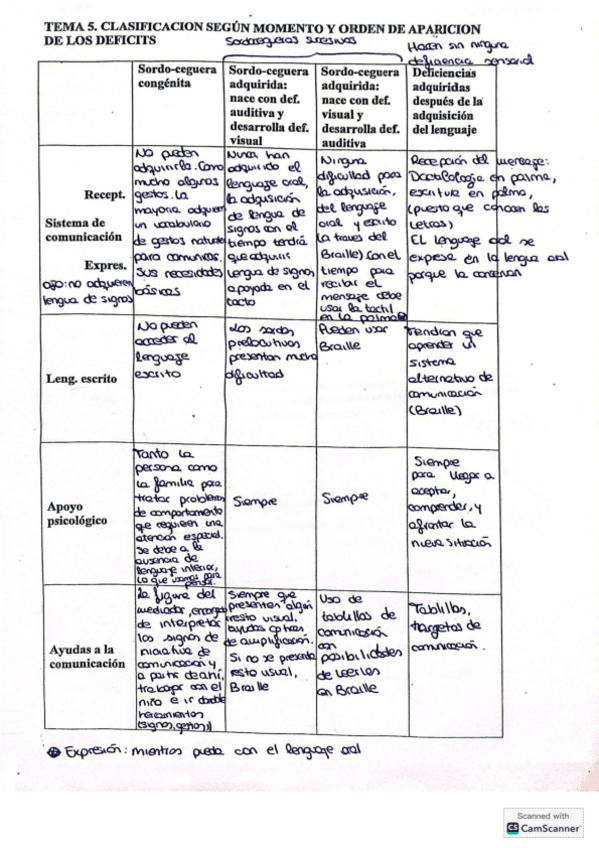 TEMA 5. CLASIFICACION SEGÚN MOMENTO Y ORDEN DE APARICION
DE LOS DEFICITS
Sordocegueras sucesivas
Nacen sin ninguna
deficiencia sensorial
Sordo-ceguera
congénita
Sordo-ceguera
adquirida:
nace con def.
auditiva y
desarrolla def.
visual
Sordo-ceguera
adquirida:
nace con def.
visual y
desarrolla def.
auditiva
Deficiencias
adquiridas
después de la
adquisición
del lenguaje
Recept.
Sistema de
comunicación
Expres.
ojo: no adquieren
lengua de signos
No pueden
adquirirla. Como
mucho algunos
gestos. La
mayoría adquiere
un vocabulario
de gestos naturales
para comunicar
sus necesidades
básicas
Nunca han
adquirido el
lenguaje oral,
la adquisición
de lengua de
signos con el
tiempo tendrá
que adquirir
lengua de signos
apoyada en el
tacto
Ninguna
dificultad para
la adquisición,
del lenguaje
oral y escrito
(a traves del
Braille) con el
tiempo para
recibir el
mensaje debe
usar la tactil
en la palma
Recepción del mensaje:
Dactilología en palma,
escritura en palma,
(puesto que conocen las
letras)
EL lenguaje oral se
expresa en la lengua oral
porque la conocen
Leng. escrito
No pueden
acceder al
lenguaje
escrito
Los sordos
prelocutivos
presentan mucha
dificultad
Pueden usar
Braille
Tendrían que
aprender un
sistema
alternativo de
comunicación
(Braille)
Apoyo
psicológico
Tanto la
persona como
la familia para
tratar problemas
de comportamiento
que requieren una
atención especial.
Se debe a la
ausencia de
lenguaje interior,
lo que usamos para
pensar.
Siempre
Siempre
Siempre
para llegar a
aceptar,
comprender, y
afrontar la
nueva situación
Ayudas a la
comunicación
la figura del
mediador, encargado
de interpretar
los signos de
iniciativa de
comunicación y
a partir de ahí,
trabajar con el
niño e ir dandole
herramientas
(signos, gestos)
Siempre que
presenten algún
resto visual,
ayudas ópticas
de amplificación.
Si no se presenta
resto visual,
Braille
Uso de
tablillas de
comunicación
con
posibilidades
de leerlos
en Braille
Tablillas,
targetas de
comunicación.
Expresión: mientras pueda con el lenguaje oral
Scanned with
CS CamScanner